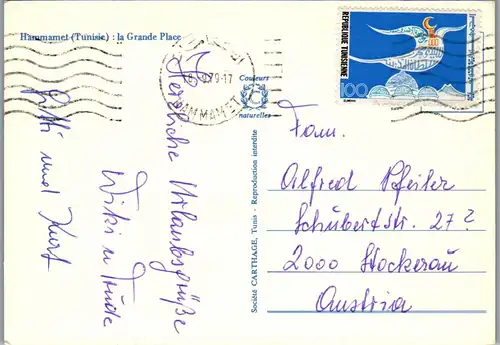 Hammamet (Tunisie) : la Grande Place
Couleurs
naturelles
Société CARTHAGE, Tunis - Reproduction interdite
HAMMAMET
REPUBLIQUE TUNISIENNE
100
Herzliche Urlaubsgrüße
Wiki u Trude
Gitti und Kurt
Fam.
Alfred Pfeiler
Schubertstr. 27?
2000 Stockerau
Austria